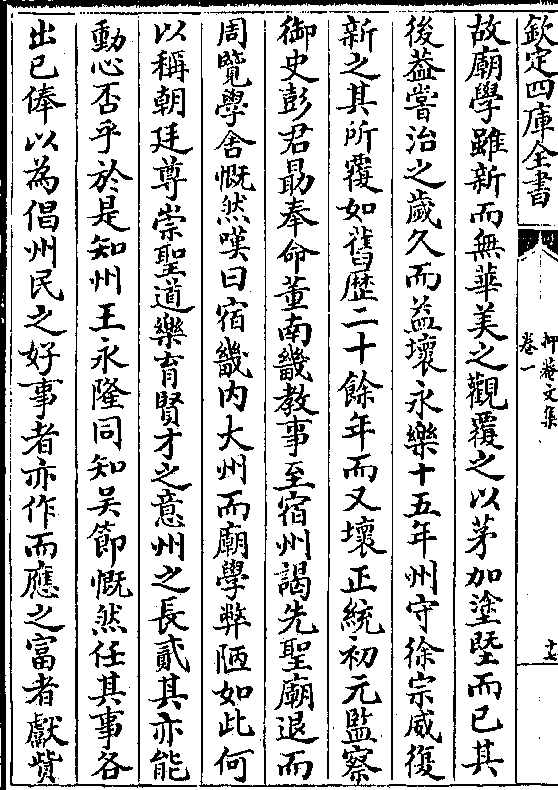 欽定四庫全書
抑菴文集
卷一
故廟學雖新而無華美之觀覆之以茅加塗塈而已其
後葢嘗治之歲久而益壞永樂十五年州守徐宗威復
新之其所覆如舊歴二十餘年而又壞正統初元監察
御史彭君勗奉命董南畿教事至宿州謁先聖廟退而
周覽學舍慨然嘆曰宿畿内大州而廟學弊陋如此何
以稱朝廷尊崇聖道樂育賢才之意州之長貳其亦能
動心否乎於是知州王永隆同知吴節慨然任其事各
出已俸以為倡州民之好事者亦作而應之富者獻貲